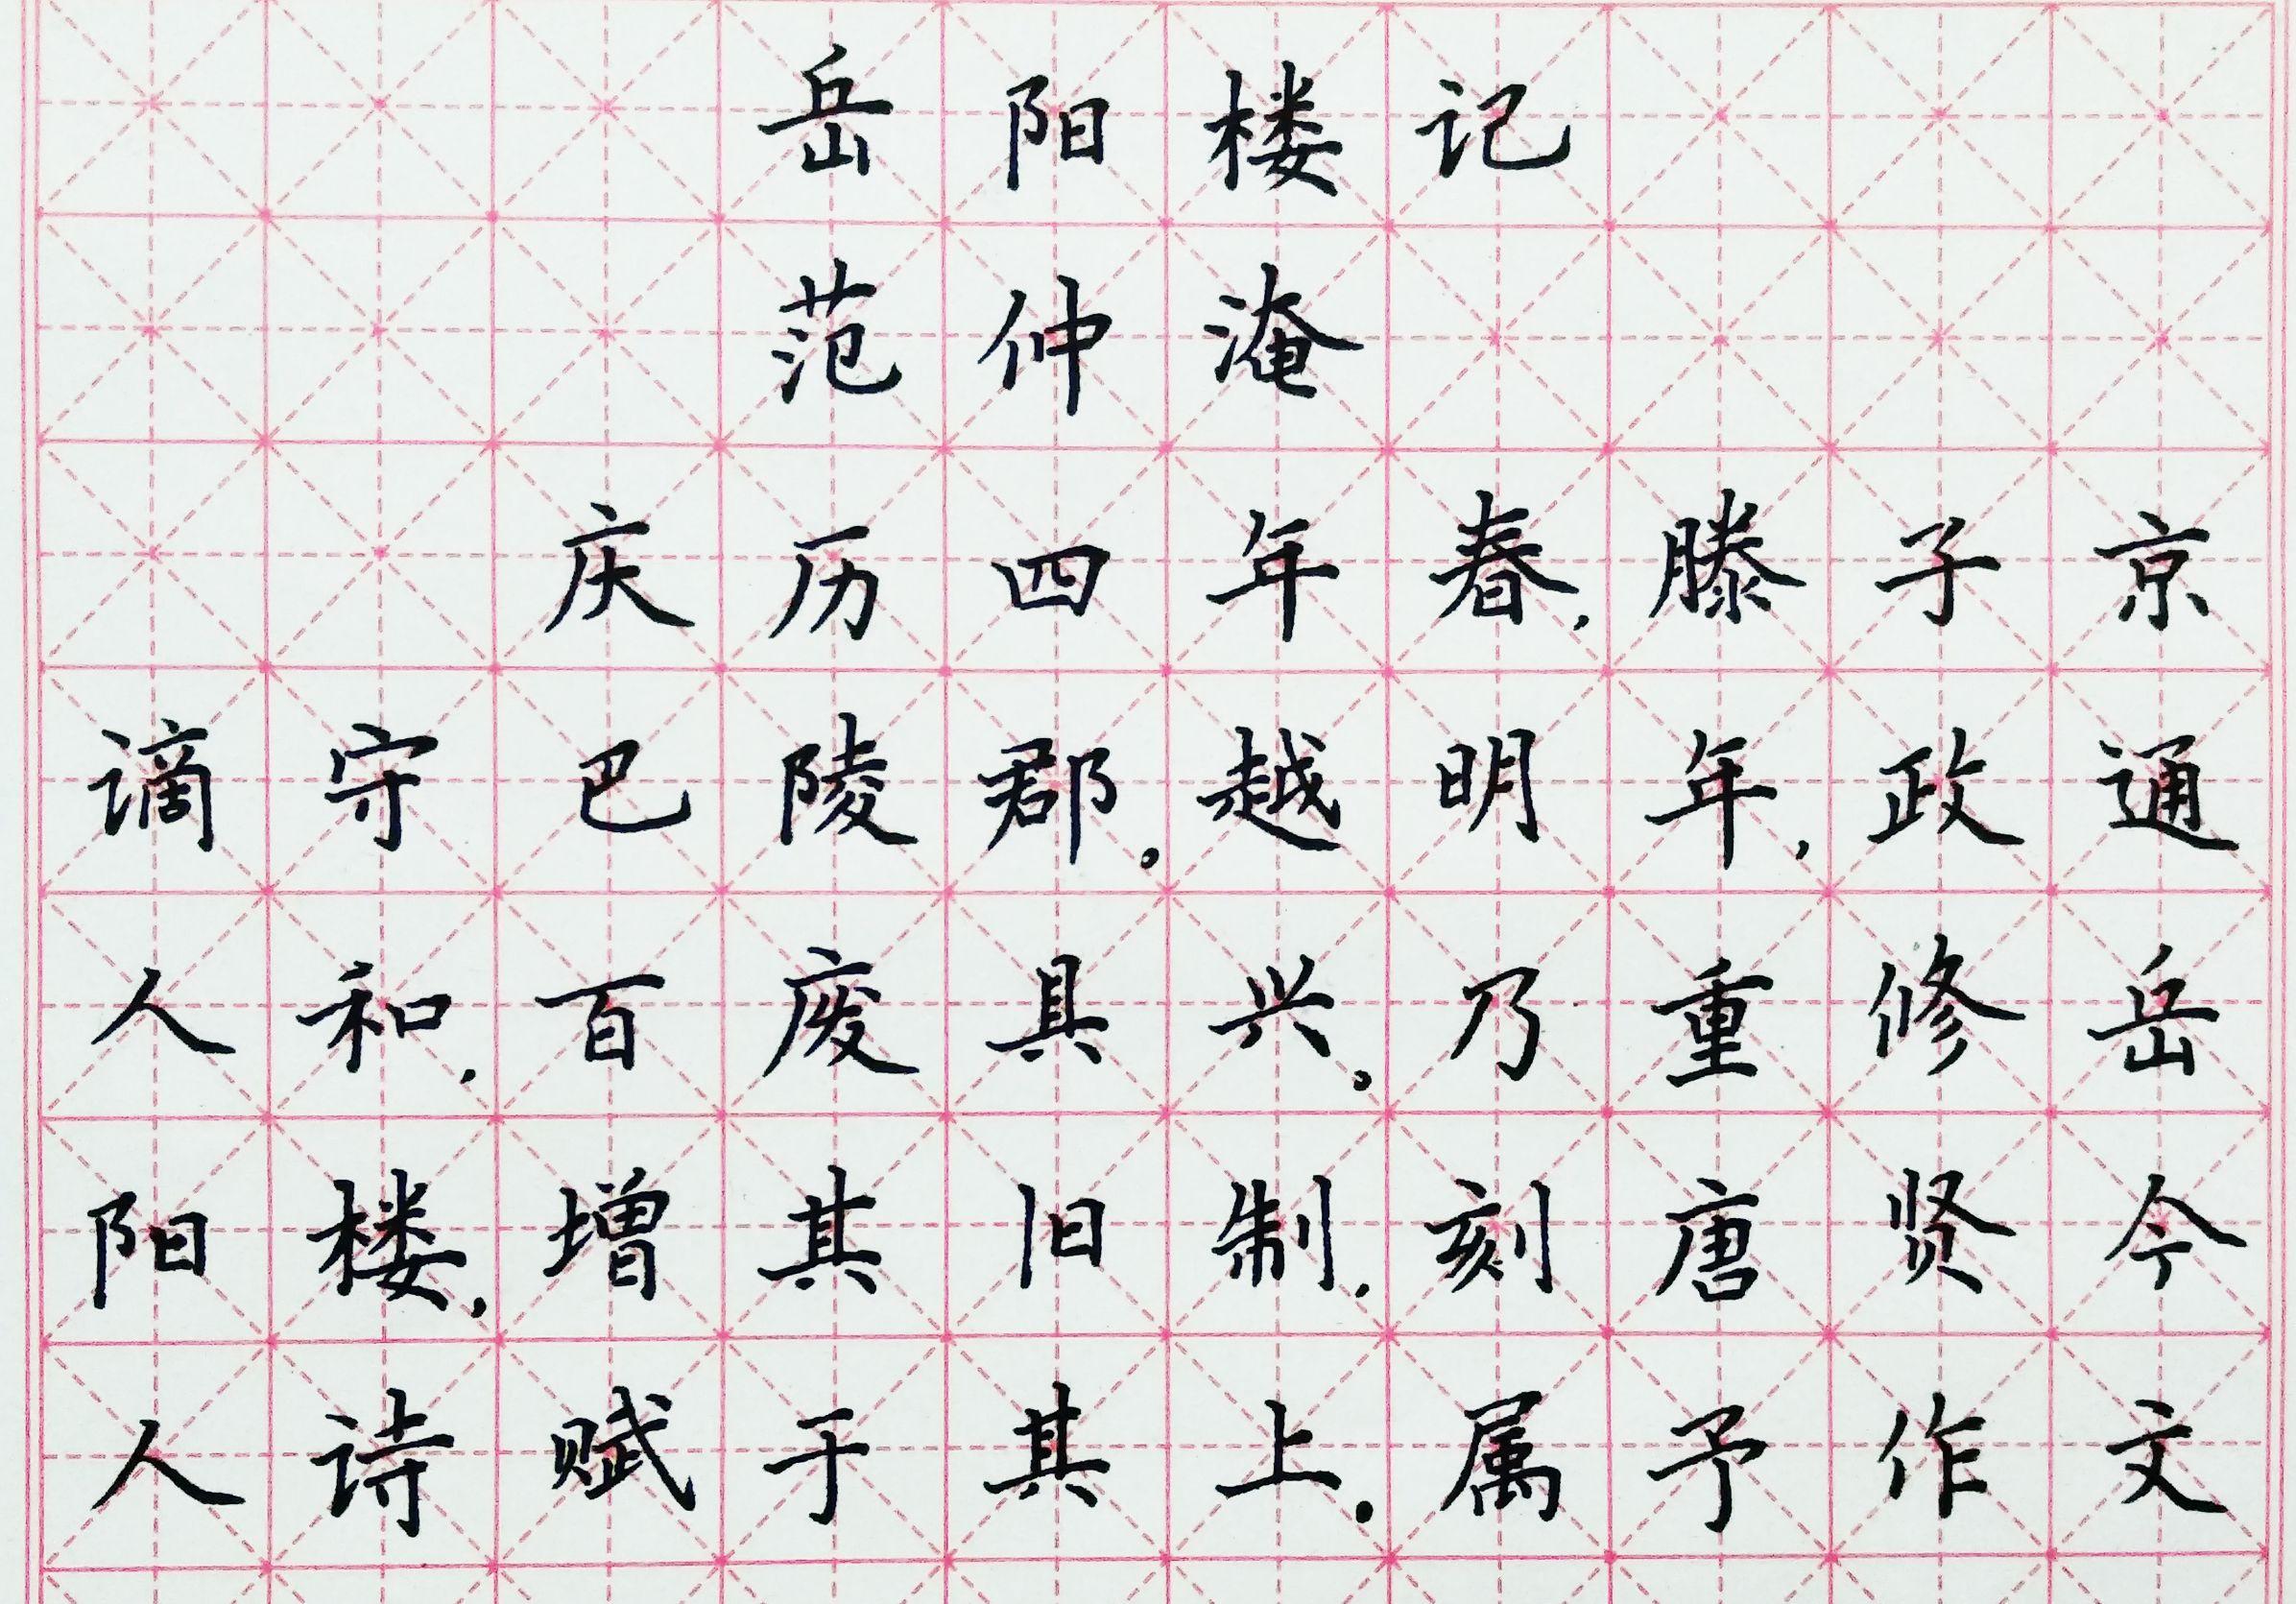 岳阳楼记
范仲淹
庆历四年春,滕子京
谪守巴陵郡。越明年,政通
人和,百废具兴。乃重修岳
阳楼,增其旧制,刻唐贤今
人诗赋于其上。属予作文